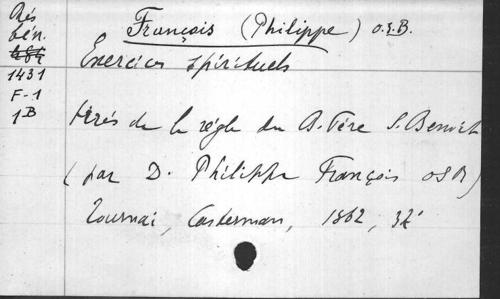 Rés
bén.
484
1431
F-1
1B
François (Philippe) O.S.B.
Exercices spirituels
tirés de la règle du B. Père S. Benoit
(par D. Philippe François OSB)
Tournai, Casterman, 1862, 32°